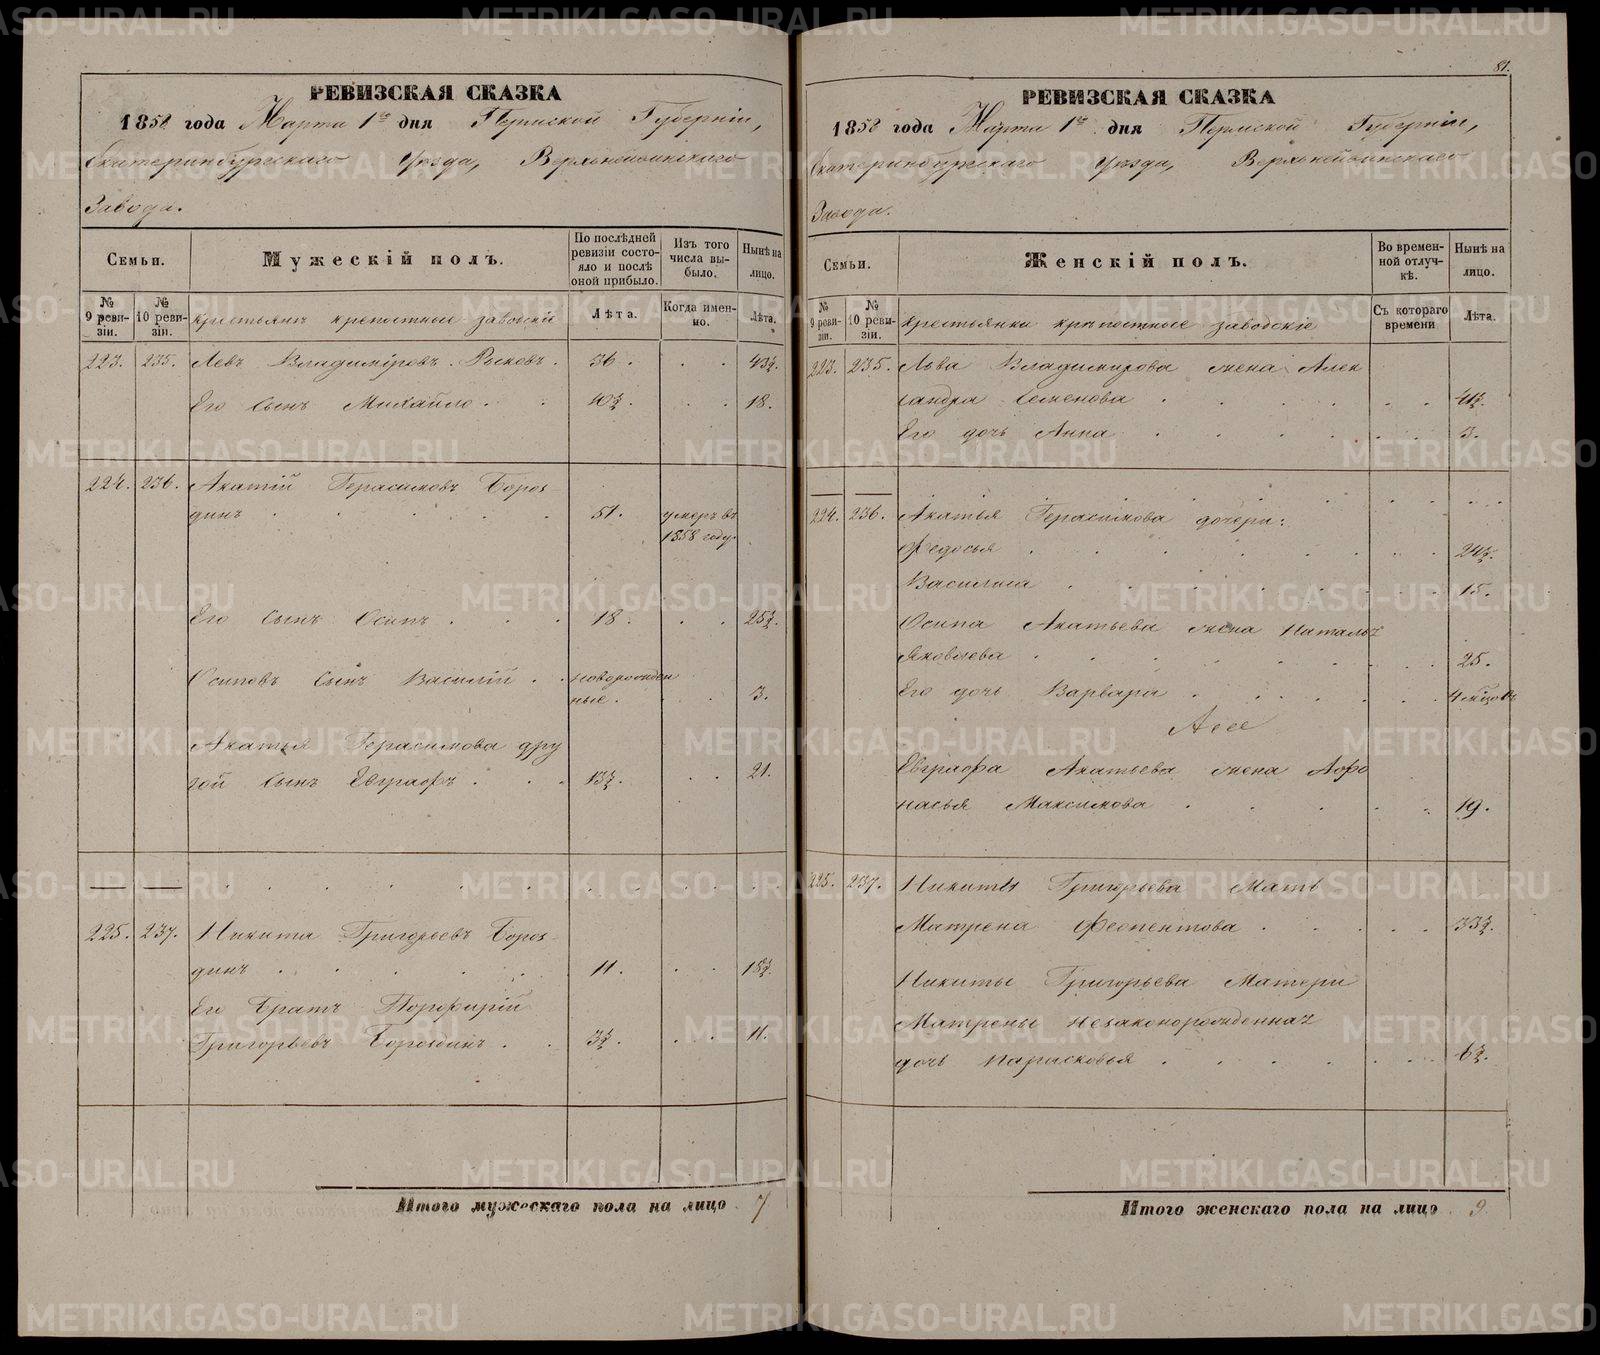 РЕВИЗСКАЯ СКАЗКА
1858 года Марта 1го дня Пермской Губерніи,
Екатеринбургскаго Уѣзда, Верхнейвинскаго
Завода.
Семьи. Мужескій полъ. По послѣдней ревизіи состояло и послѣ оной прибыло. Изъ того числа выбыло. Нынѣ на лицо.
№ 9 ревизіи. № 10 ревизіи. Крестьянъ крепостные заводскіе Лѣта. Когда именно. Лѣта.
223. 235. Левъ Владиміровъ 36. 43½.
Его сынъ Михайло 10½. 18.
224. 236. Акатій Герасимовъ Бороз
динъ 51. умеръ въ
1858 году.
Его сынъ Осипъ 18. 25½.
Осиповъ сынъ Василій новорожден
ные. 3.
Акатья Герасимова дру
гой сынъ Евграфъ 13½. 21.
225. 237. Никита Григорьевъ Бороз
динъ 11. 18½.
Его братъ Порфирій
Григорьевъ Бороздинъ 3½. 11.
Итого мужескаго пола на лицо 7
81.
РЕВИЗСКАЯ СКАЗКА
1858 года Марта 1го дня Пермской Губерніи,
Екатеринбургскаго Уѣзда, Верхнейвинскаго
Завода.
Семьи. Женскій полъ. Во временной отлучкѣ. Нынѣ на лицо.
№ 9 ревизіи. № 10 ревизіи. Крестьянки крѣпостные заводскіе Съ котораго времени Лѣта.
223. 235. Льва Владимирова жена Алек
сандра Семенова 41½.
Его дочь Анна 3.
224. 236. Акатья Герасимова дочери:
Федосья 24½.
Василиса 15.
Осипа Акатьева жена Наталья
Яковлева 25.
Его дочь Варвара 4 мѣсяцовъ
Евграфа Акатьева жена Афо
насья Максимова 19.
225. 237. Никиты Григорьева мать
Матрена Феопентова 33½.
Никиты Григорьева матери
Матрены незаконорожденная
дочь Парасковья 6½.
Итого женскаго пола на лицо 9.
METRIKI.GASO-URAL.RU